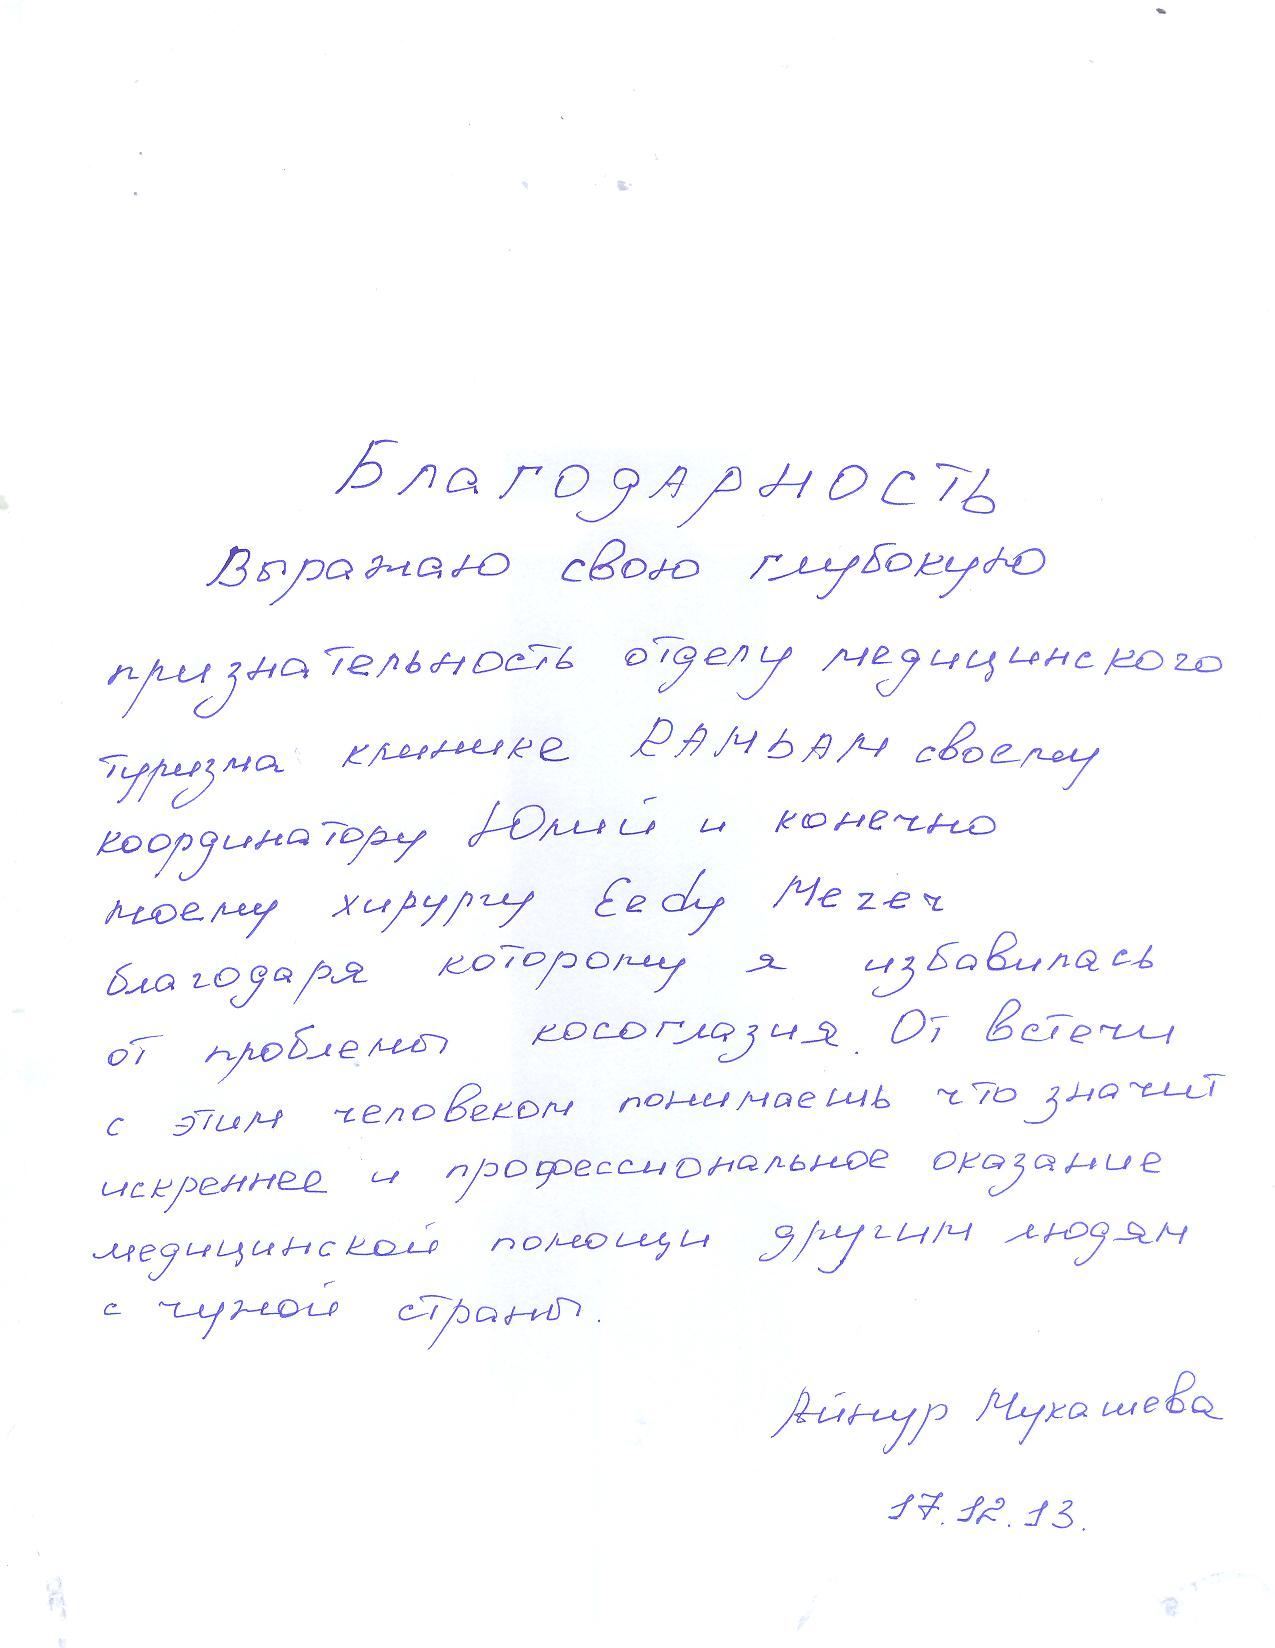 Благодарность
Выражаю свою глубокую
признательность отделу медицинского
туризма клинике RAMbAM своему
координатору Юлий и конечно
моему хирургу Eedy Мезеч
благодаря которому я избавилась
от проблемы косоглазия. От встечи
с этим человеком понимаешь что значит
искреннее и профессиональное оказание
медицинской помощи другим людям
с чужой страны.
Айнур Мукашева
17.12.13.